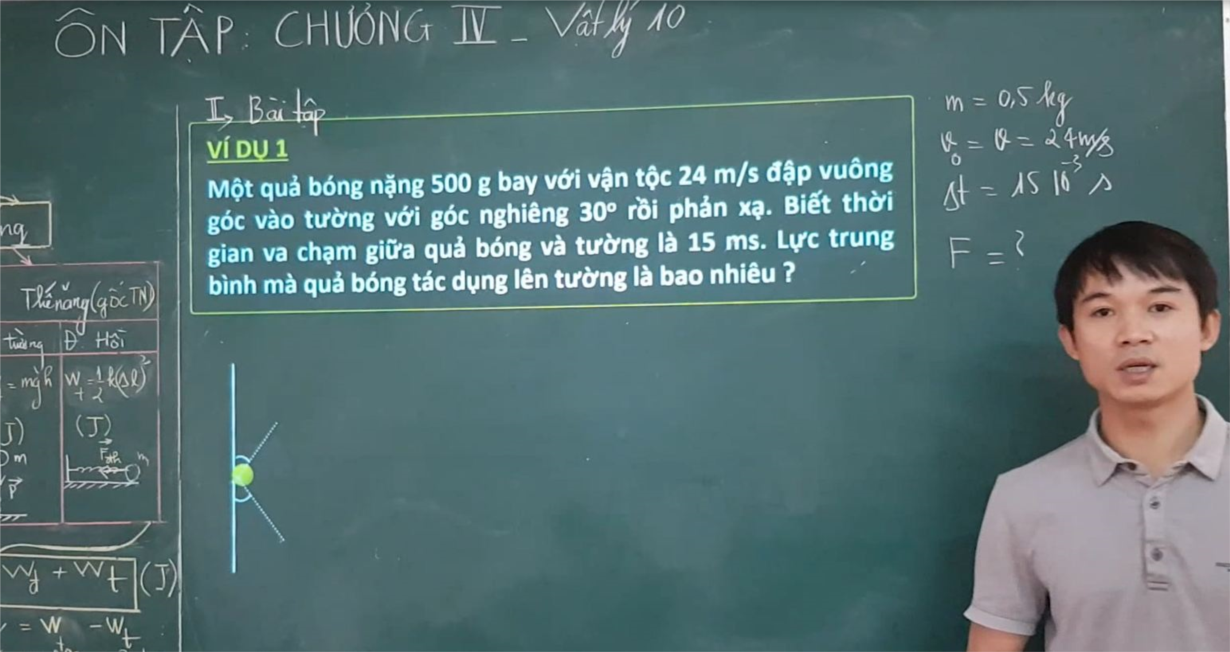 ÔN TẬP: CHƯƠNG IV - Vật lý 10
II, Bài tập
VÍ DỤ 1
Một quả bóng nặng 500 g bay với vận tộc 24 m/s đập vuông
góc vào tường với góc nghiêng 30º rồi phản xạ. Biết thời
gian va chạm giữa quả bóng và tường là 15 ms. Lực trung
bình mà quả bóng tác dụng lên tường là bao nhiêu ?
m = 0,5 kg
v₀ = v = 24 m/s
Δt = 15 10⁻³ s
F = ?
ng
Thế năng (gốc TN)
tường Đ. Hồi
= mgh W_t = ½ k(Δl)²
J) (J)
m F_đh m
P
W_đ + W_t (J)
= W - W_t